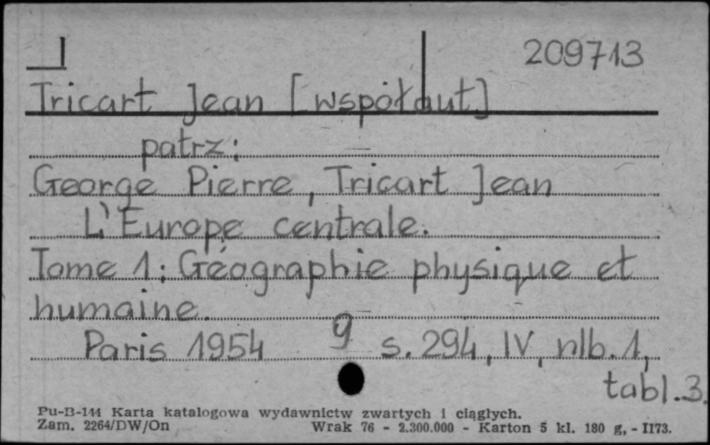 209713
Tricart Jean [współaut]
patrz:
George Pierre, Tricart Jean
L'Europe centrale.
Tome 1: Géographie physique et
humaine.
Paris 1954 9 s. 294, IV, nlb. 1,
tabl. 3.
Pu-B-144 Karta katalogowa wydawnictw zwartych i ciągłych.
Zam. 2264/DW/On Wrak 76 - 2.300.000 - Karton 5 kl. 180 g. - I173.